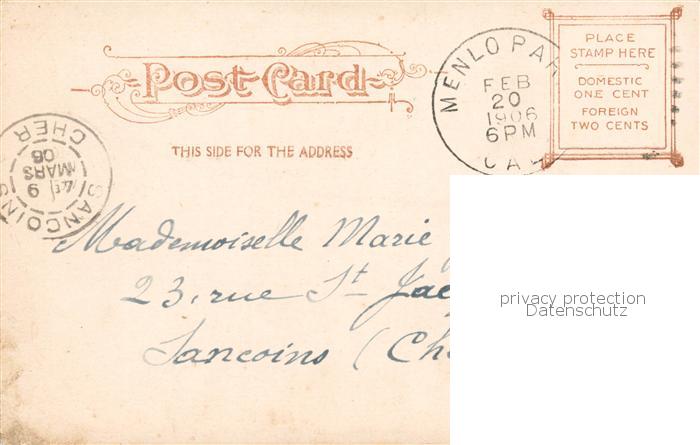 Post Card
THIS SIDE FOR THE ADDRESS
MENLO PAR
FEB
20
1906
6PM
CAL
PLACE
STAMP HERE
DOMESTIC
ONE CENT
FOREIGN
TWO CENTS
SANCOINS
9
MARS
06
CHER
Mademoiselle Marie
23, rue St Jac
Sancoins (Ch
privacy protection
Datenschutz